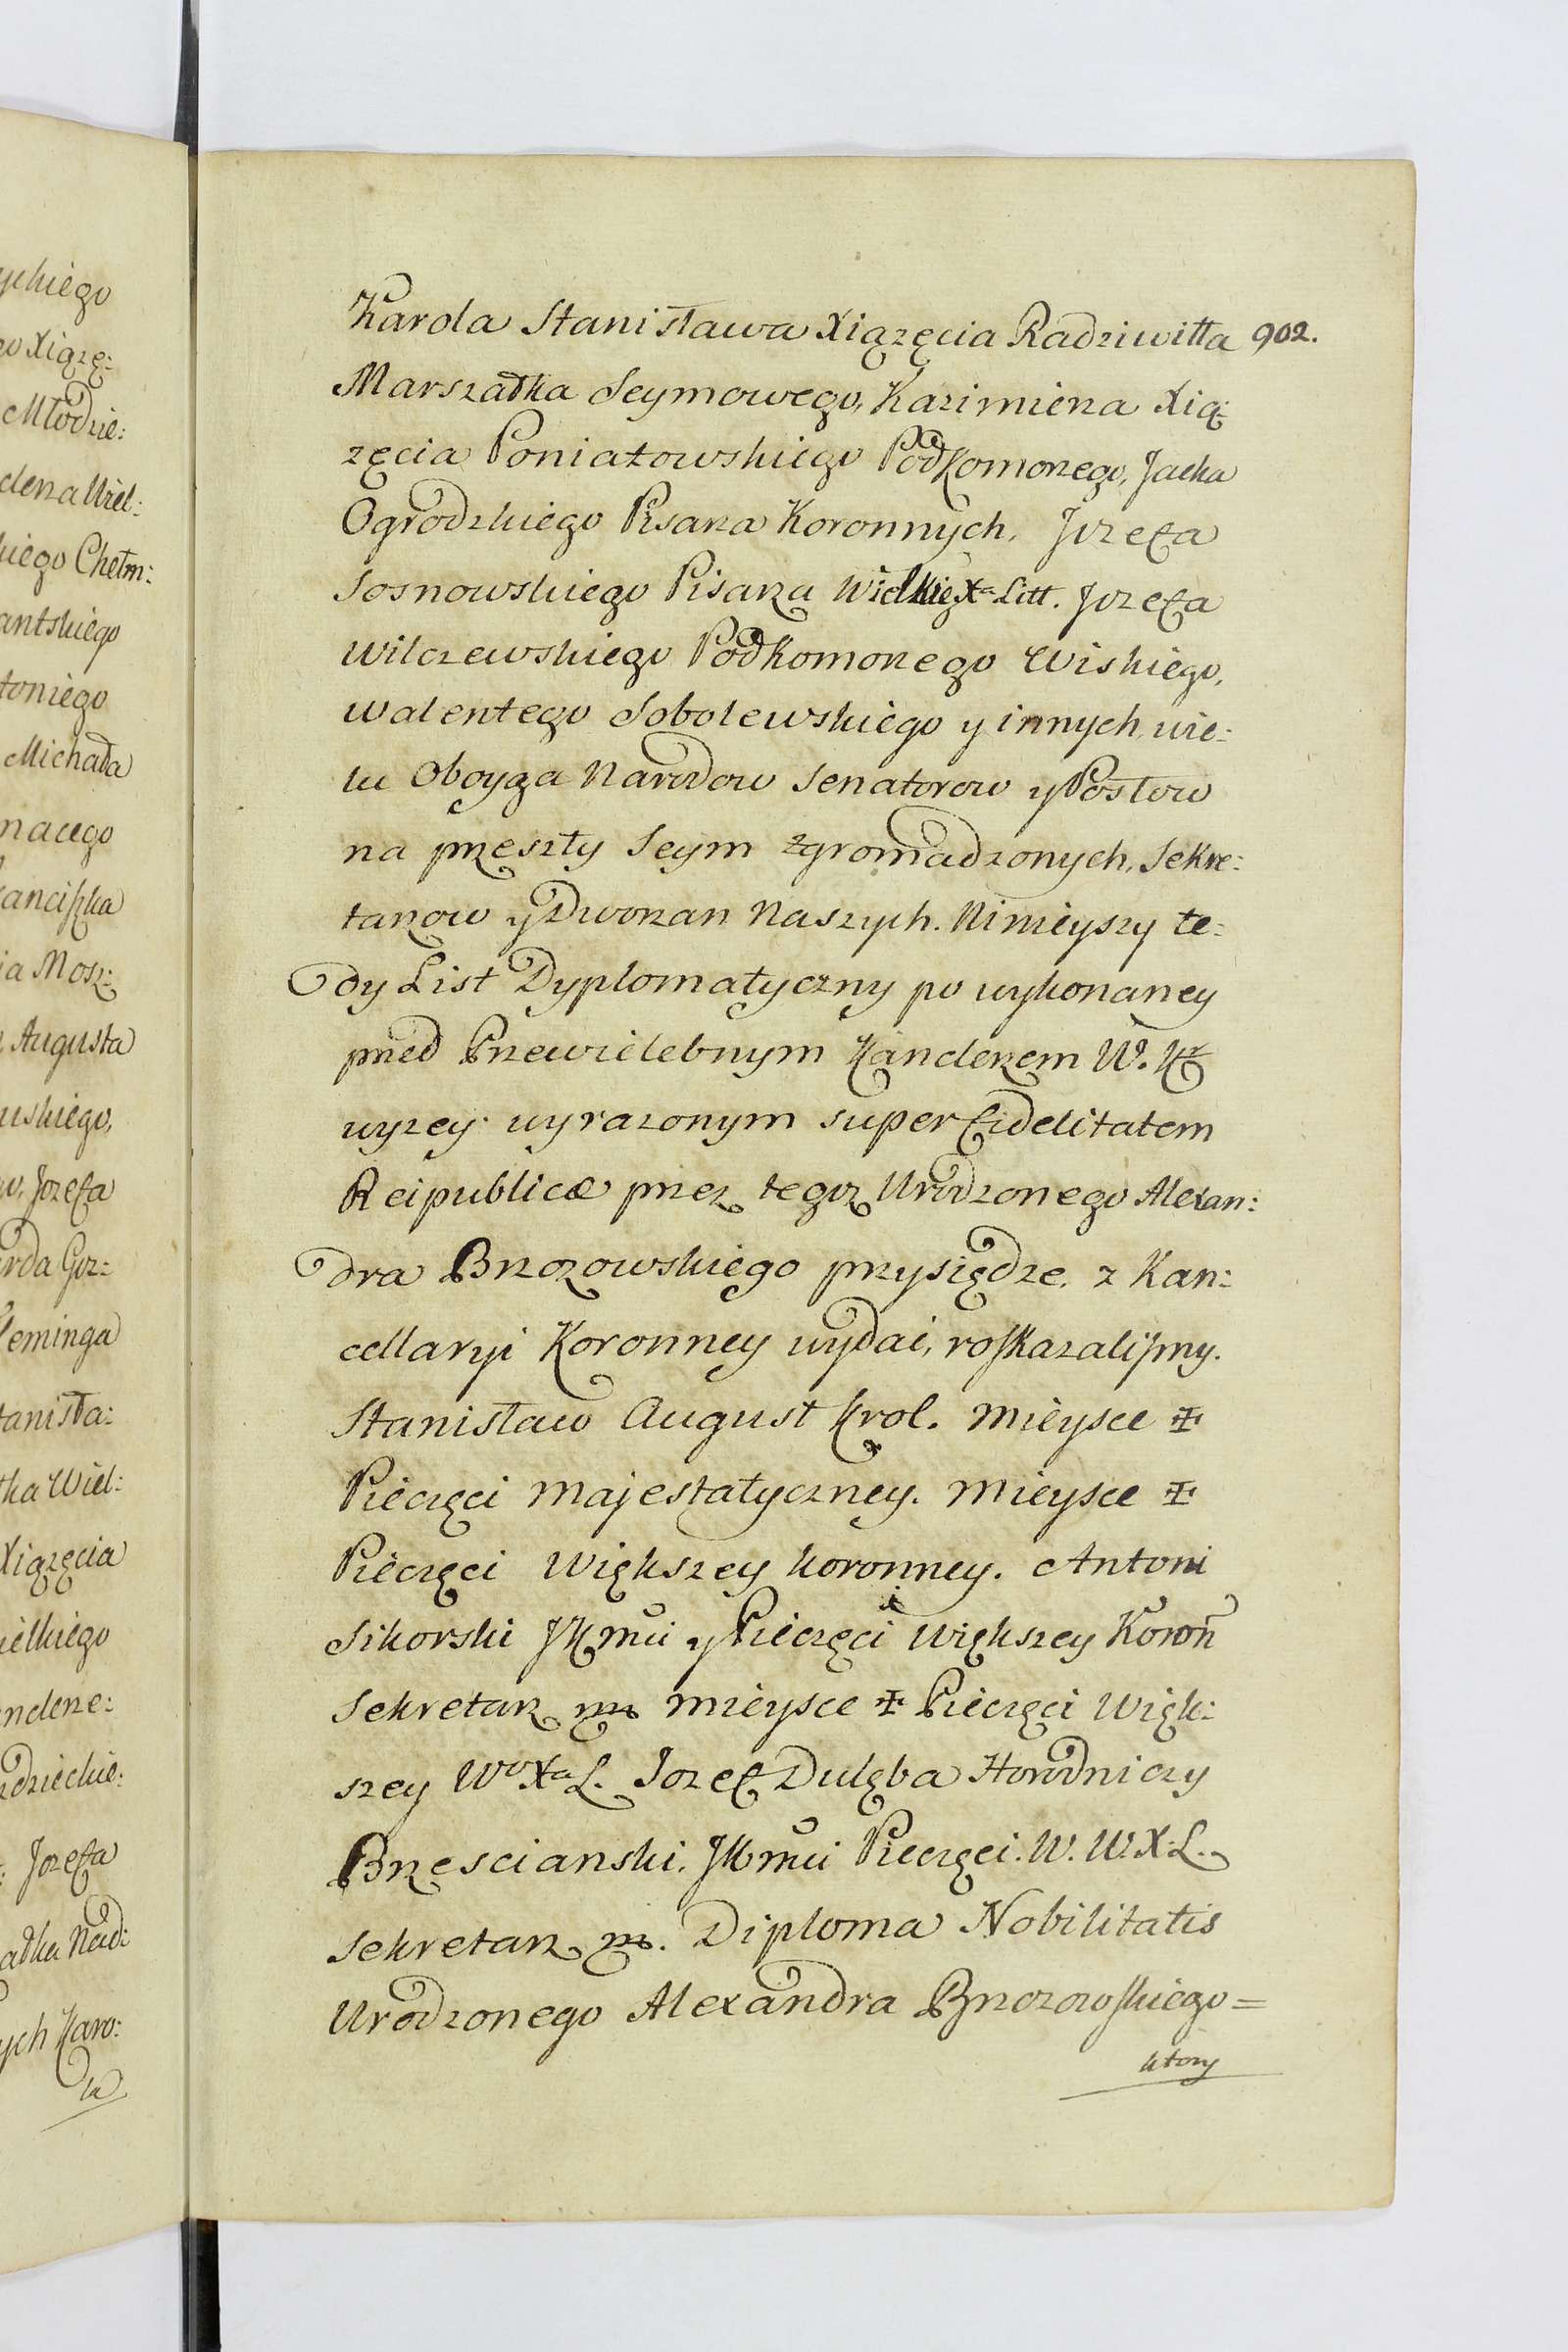 ychiego
o Xiązę:
Młodzie:
clerza Wiel:
kiego Chełm:
antskiego
toniego
Michała
nacego
anciszka
ia Mosz:
Augusta
uskiego,
w, Jozefa
rda Goz:
leminga
tanisła:
ka Wiel:
Xiązęcia
ielkiego
nclerze:
dzieckie:
Jozefa
adka Nad:
ych Karo:
la
Karola Stanisława Xiązęcia Radziwiłła 902.
Marszałka Seymowego, Kazimierza Xią:
zęcia Poniatowskiego Podkomorzego, Jacka
Ogrodzkiego Pisarza Koronnych, Jozefa
Sosnowskiego Pisarza Wielkieg Xa Litt. Jozefa
Wilczewskiego Podkomorzego Wiskiego,
Walentego Sobolewskiego y innych wie:
lu Oboyga Narodow Senatorow y Posłow
na przeszły Seym zgromadzonych, Sekre:
tarzow y Dworzan Naszych. Ninieyszy te:
dy List Dyplomatyczny po wykonaney
przed Przewielebnym Kanclerzem W. Kr
wyzey wyrazonym super Fidelitatem
Reipublicæ przez tegoz Urodzonego Alexan:
dra Brzozowskiego przysiędze, z Kan:
cellaryi Koronney wydać, roskazaliśmy.
Stanisław August Krol. Mieysce ✠
Pieczęci Majestatyczney. Mieysce ✠
Pieczęci Większey Koronney. Antoni
Sikorski JKmći y Pieczęci Większey Koroñ
Sekretarz mp Mieysce ✠ Pieczęci Więk:
szey Wo Xa L. Jozef Dulęba Horodniczy
Brzescianski, JKmći Pieczęci. W. W. X. L.
Sekretarz mp. Diploma Nobilitatis
Urodzonego Alexandra Brzozoskiego =
ktory